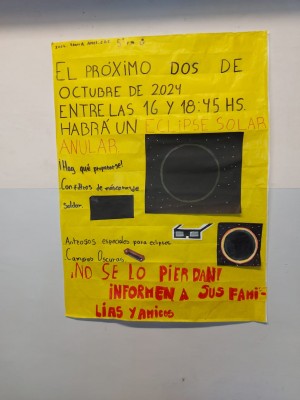 EL PRÓXIMO DOS DE
OCTUBRE DE 2024
ENTRE LAS 16 Y 18:45 HS.
HABRÁ UN ECLIPSE SOLAR
ANULAR
¡Hay que prepararse!
Con filtros de máscaras de
Soldar.
Anteojos especiales para eclipses
Camaras Oscuras
¡NO SE LO PIERDAN!
INFORMEN A SUS FAMI-
LIAS Y AMIGOS